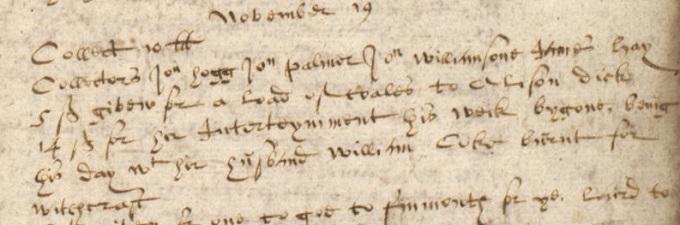 November 19
Collect 10 lb
Collectors Jon hogg Jon palmer Jon williamsone James hay
5 ß given for a load of Coales to Alison dick
14 ß for hir Interteynment this weik bygone, being
this day wt hir husband william Coke burnt for
witchcraft
for one to goe to for ye laird to